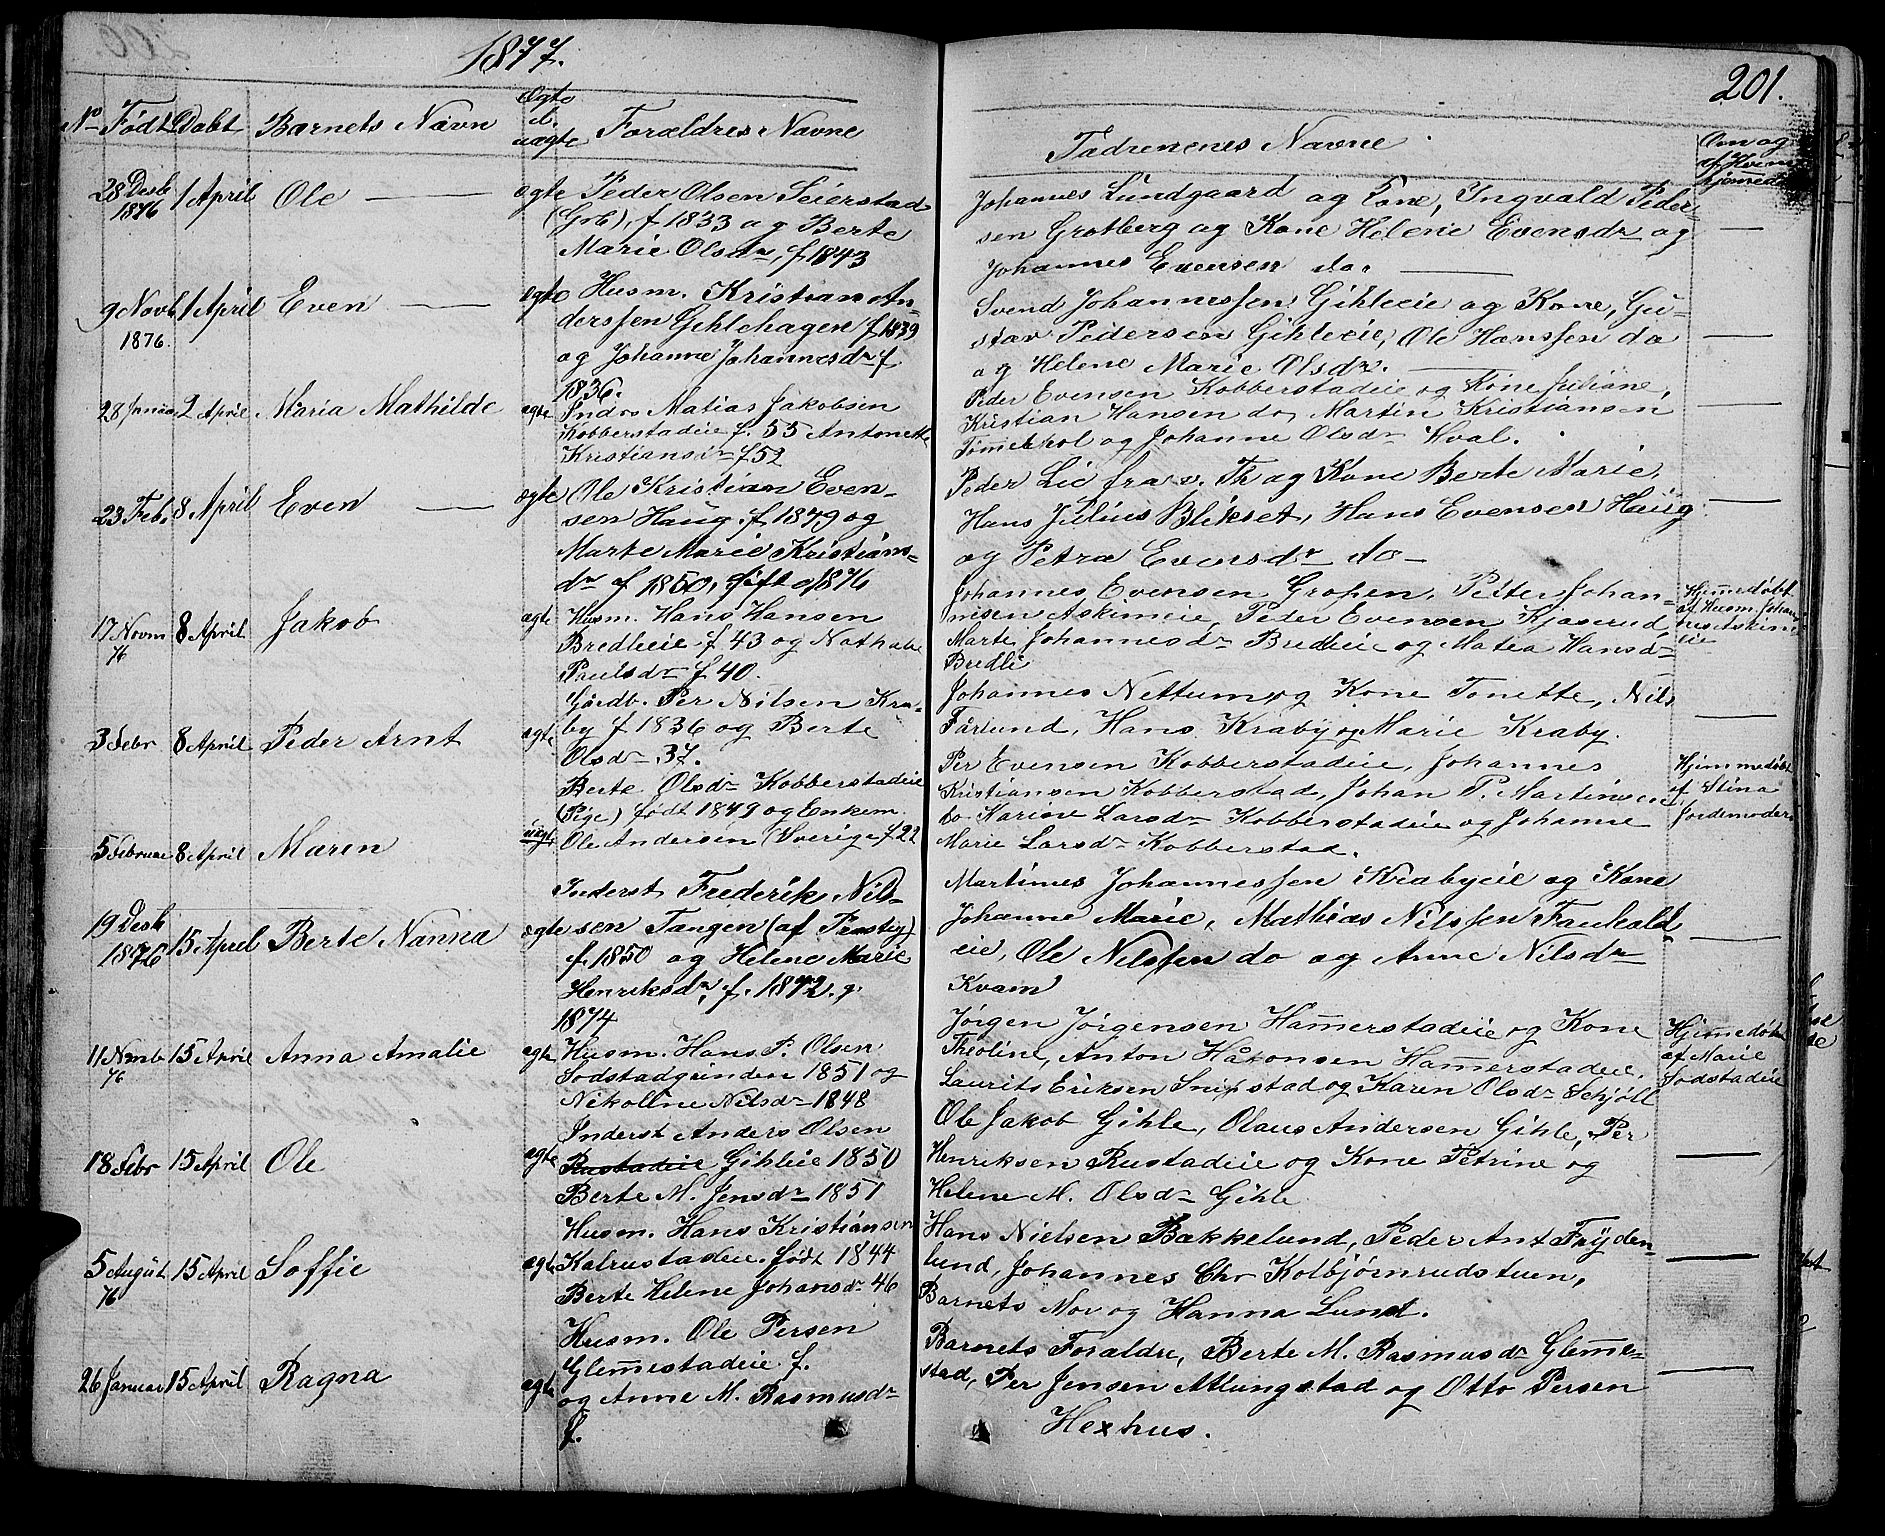 1877.
201.
No Født Døbt Barnets Navn Ægte el. uægte Forældres Navne
Fadrenenes Navne
Om og af Hvem hjemmedøbt
28 Desb 1876 1 April Ole ægte Peder Olsen Seierstad
(Grb), f 1833 og Berte
Marie Olsdr, f 1843
Johannes Lundgaard og Kone, Ingvald Peder-
sen Grotberg og Kone Helene Evensdr og
Johannes Evensen do.
9 Novb 1876. 1 April Even ægte Husm. Kristian An-
derssen Gihlehagen f 1839
og Johanne Johannesdr f
1836.
Svend Johannessen Gihleeie og Kone, Gu-
stav Pedersen Gihleeie, Ole Hanssen do
og Helene Marie Olsdr.
28 Januar 2 April Maria Mathilde ægte Inders Matias Jakobsen
Kobberstadeie f. 55 Antonette
Kristiansdr f 52
Peder Evensen Kobberstadeie og Kone Juliane,
Kristian Hansen do, Martin Kristiansen
og Johanne Olsdr Hval.
23 Feb. 8 April Even ægte Ole Kristian Even-
sen Haug f 1849 og
Marte Marie Kristians-
dr f 1850, gift 1876
Peder Lie fra v. Th og Kone Berte Marie,
Hans Julius Blikset, Hans Evensen Haug
og Petra Evensdr do
17 Novm 76 8 April Jakob ægte Husm. Hans Hansen
Bredlieie f 43 og
Paulsdr f 40.
Johannes Evensen Grosen, Petter Johan-
nesen Askimeie, Peder Evensen Kjøserud,
Marte Johannesdr Bredlieie og Matea Hansdr
Bredli
Hjemmedøbt
af Husm. Johan-
nes Askim-
eie
3 Febr 8 April Peder Arnt ægte Gårdb. Per Nilsen Kra-
by f 1836 og Berte
Olsdr 37.
Johannes Nettum og Kone Tonette, Nils
Fårlund, Hans Kraby og Marie Kraby.
5 Februar 8 April Maren uægt Berte Olsdr Kobberstadeie
(Pige) født 1849 og Enkem.
Ole Andersen (Sverige f 22
Per Evensen Kobberstadeie, Johannes
Kristiansen Kobberstad, Johan P. Martinsen
do. Karine Larsdr Kobberstadeie og Johanne
Marie Larsdr Kobberstad.
Hjemmedøbt
af Stina
Jordemoder
19 Desb 1876 15 April Berte Nanna ægte Inderst Frederik Nil-
sen Tangen (af
f 1850 og Helene Marie
Henriksdr, f. 1842. g.
1874
Martines Johannessen Krabyeie og Kone
Johanne Marie, Mathias Nilssen Faukald-
eie, Ole Nilssen do og Anne Nilsdr
Kvam
11 Nvmb 76 15 April Anna Amalie ægte Husm. Hans P. Olsen
Sodstadgrinden 1851 og
Nikoline Nilsdr 1848
Jørgen Jørgensen Hammerstadeie og Kone
Theoline, Anton Håkonsen Hammerstadeie.
Laurits Eriksen Snipstad og Karen Olsdr Schjøll
Hjemmedøbt
af Marie
Sodstadeie
18 Febr 15 April Ole ægte Inderst Anders Olsen
Rustadeie Gihleie 1850
Berte M. Jensdr 1851
Ole Jakob Gihle, Olaus Andersen Gihle, Per
Henriksen Rustadeie og Kone Petrine og
Helene M. Olsdr Gihle
5 August 76 15 April Soffie ægte Husm. Hans Kristiansen
Kalrustadeie. født 1844
Berte Helene Johansdr 46
Hans Nielsen Bækkelund, Peder Ant Frÿden-
lund, Johannes Chr Kolbjørnrudstuen,
Barnets Mor og Hanna Lund.
26 Januar 15 April Ragna ægte Husm. Ole Persen
Glemmestadeie f.
og Anne M. Rasmusdr
f.
Barnets Forældre, Berte M. Rasmusdr Glemme-
stad, Per Jensen Alungstad og Otto Persen
Hexhus.